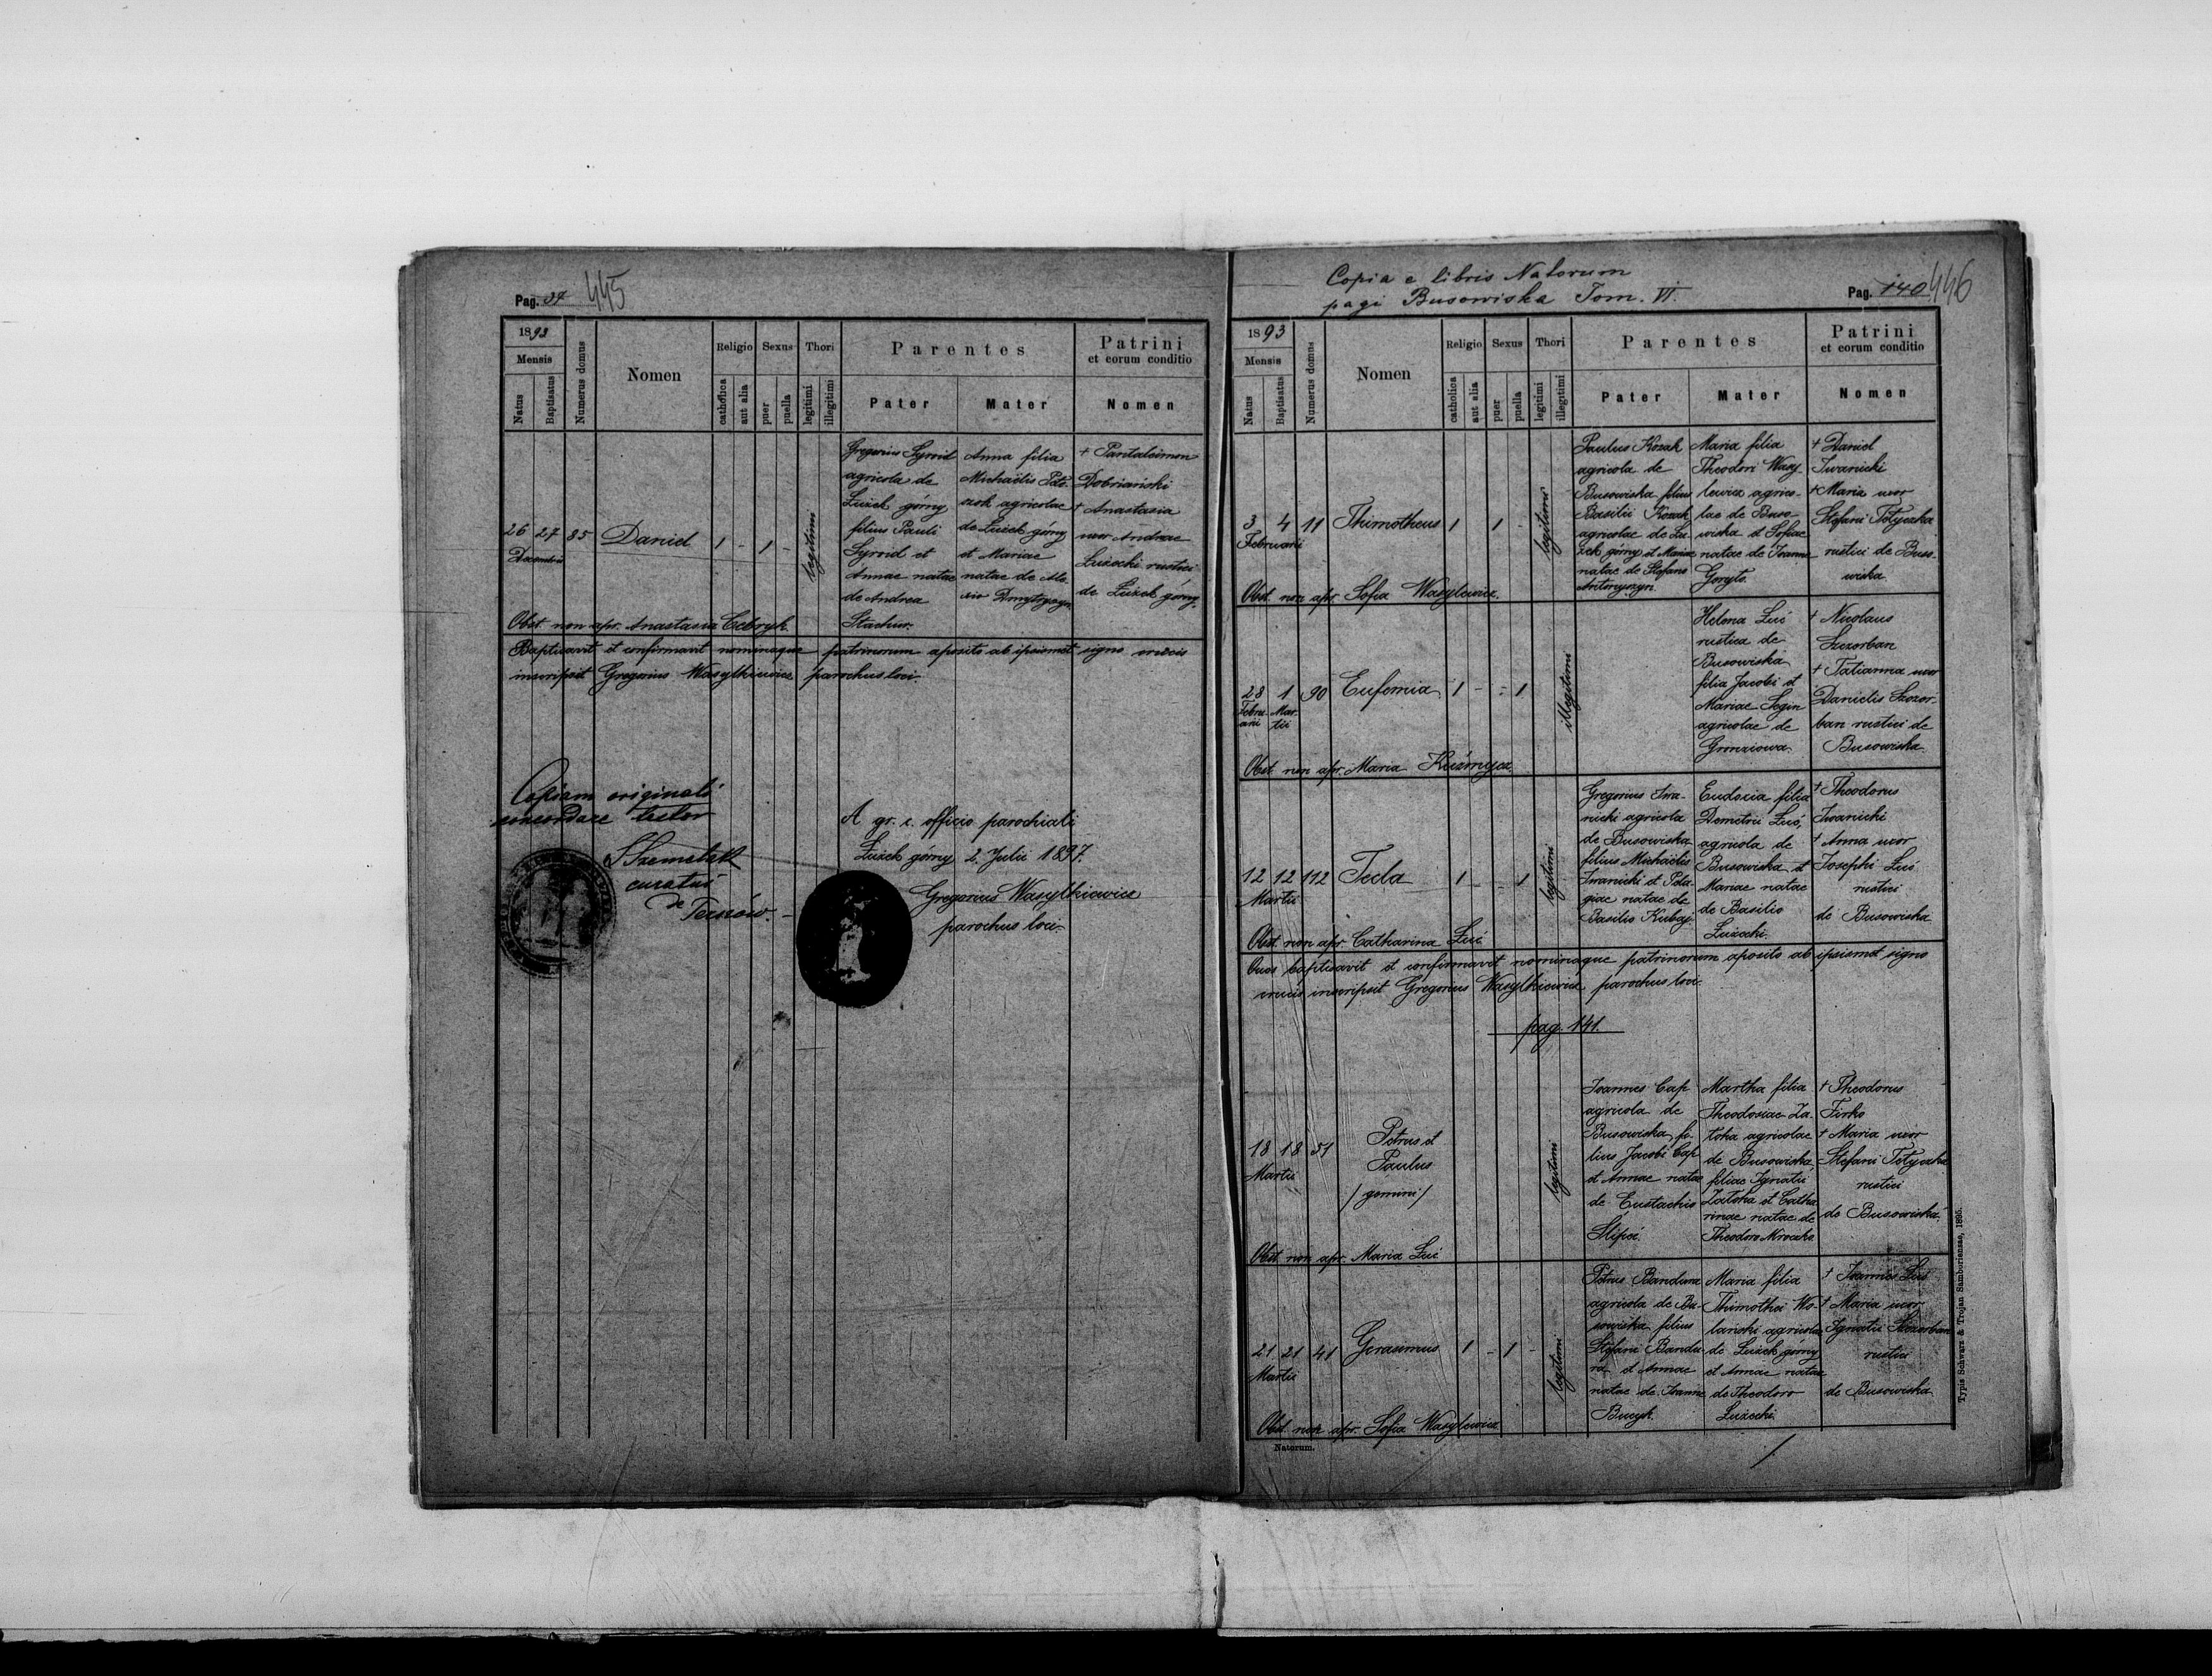 Pag. 37 445
1893
Mensis
Natus
Baptisatus
Numerus domus
Nomen
Religio
catholica
aut alia
Sexus
puer
puella
Thori
legitimi
illegitimi
Parentes
Pater
Mater
Patrini
et eorum conditio
Nomen
26 27 85 Daniel 1 - 1 - legitimi
Decembris
Gregorius Syroid
agricola de
Łużek górny
filius Pauli
Syroid et
Annae natae
de Andrea
Stachur.
Anna filia
Michaëlis
agricolae
de Łużek górny
et Mariae
natae de Ale
xio Dmytryszyn
+ Pantaleimon
Dobriański
+ Anastasia
uxor Andreae
Łużecki rustici
de Łużek górny.
Obst. non apr. Anastasia Cebryk.
Baptisavit et confirmavit nominaque patrinorum aposito ab ipsismet signo crucis
inscripsit Gregorius Wasylkiewicz parochus loci.
Copiam originali
concordare testor
curatus
de Terszów
A gr. c. officio parochiali
Łużek górny 2. Julii 1897.
Gregorius Wasylkiewicz
parochus loci.
Copia e libris Natorum
pagi Busowiska Tom. VI.
Pag. 140 446
1893
Mensis
Natus
Baptisatus
Numerus domus
Nomen
Religio
catholica
aut alia
Sexus
puer
puella
Thori
legitimi
illegitimi
Parentes
Pater
Mater
Patrini
et eorum conditio
Nomen
3 4 11 Thimotheus 1 1 - legitimi
Februarii
Paulus Kozak
agricola de
Busowiska filius
Basilii Kozak
agricolae de Łu
żek górny et Mariae
natae de Stefano
Antonyszyn.
Maria filia
Theodori Wasy
lewicz agrico-
lae de Buso-
wiska et Sofiae
natae de Joanne
Goryto.
+ Daniel
Iwanicki
+ Maria uxor
Stefani Tetyczka
rustici de Buso
wiska.
Obst. non apr. Sofia Wasylewicz.
28 1 90 Eufemia 1 - - 1 illegitimi
Febru- Mar-
arii tii
Helena Łuć
rustica de
Busowiska
filia Jacobi et
Mariae Segin
agricolae de
Groziowa.
+ Nicolaus
Szczerban
+ Tatianna uxor
Danielis Szczer-
ban rustici de
Busowiska.
Obst. non apr. Maria Kuźmycz.
12 12 112 Tecla 1 - - 1 legitimi
Martii
Gregorius Iwa-
nicki agricola
de Busowiska
filius Michaëlis
Iwanicki et Pela
giae natae de
Basilio Kubaj
Eudoxia filia
Demetrii Łuć,
agricola de
Busowiska et
Mariae natae
de Basilio
Łużecki.
+ Theodorus
Iwanicki
+ Anna uxor
Josephi Łuć
rustici
de Busowiska
Obst. non apr. Catharina Łuć
Quos baptisavit et confirmavit nominaque patrinorum aposito ab ipsismet signo
crucis inscripsit Gregorius Wasylkiewicz parochus loci.
pag. 141.
18 18 51 Petrus et
Martii
Paulus
/gemini/
legitimi
Joannes Cap
agricola de
Busowiska fi-
lius Jacobi Cap
et Annae natae
de Eustachio
Slipec.
Martha filia
Theodosiae Za-
toka agricolae
de Busowiska
filiae Ignatii
Zatoka et Catha
rinae natae de
Theodoro Mroczko
+ Theodorus
Firko
+ Maria uxor
Stefani Tetyczka
rustici
de Busowiska.
Obst. non apr. Maria Łuć
21 21 41 Gerasimus 1 - 1 - legitimi
Martii
Petrus Bandura
agricola de Bu-
sowiska filius
Stefani Bandu
ra et Annae
natae de Joanne
Bucyk.
Maria filia
Thimothei Wo-
lański agricolae
de Łużek górny
et Annae natae
de Theodoro
Łużecki.
+ Joannes Łuć
+ Maria uxor
Ignatii Szczerban
rustici
de Busowiska
Obst. non apr. Sofia Wasylewicz
Natorum.
Typis Schwarz & Trojan Samboriensae, 1895.